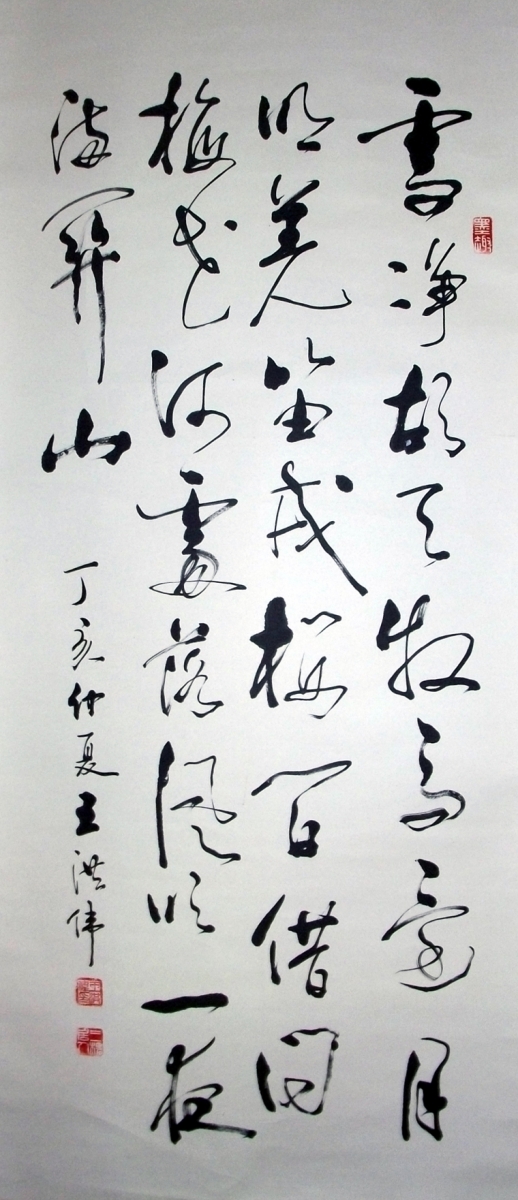 雪净胡天牧馬還月
明羌笛戍樓間借問
梅花何處落風吹一夜
滿關山
丁亥仲夏王洪偉